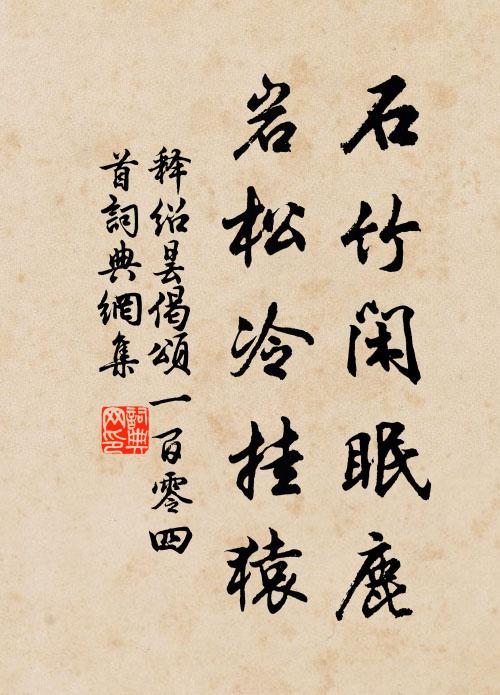 石竹闲眠鹿
岩松冷挂猿
释绍昙偈颂一百零四
首詞典網集
詞典
网印